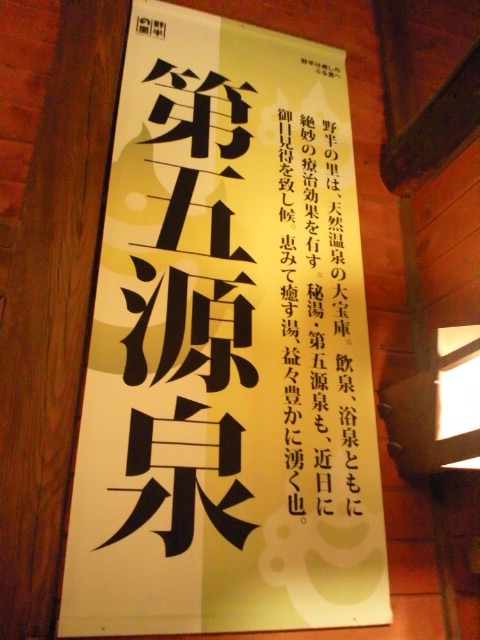 野半の里
野半は癒しの
ふる里へ
野半の里は、天然温泉の大宝庫。飲泉、浴泉ともに
絶妙の療治効果を有す。秘湯・第五源泉も、近日に
御目見得を致し候。恵みて癒す湯、益々豊かに湧く也。
第五源泉